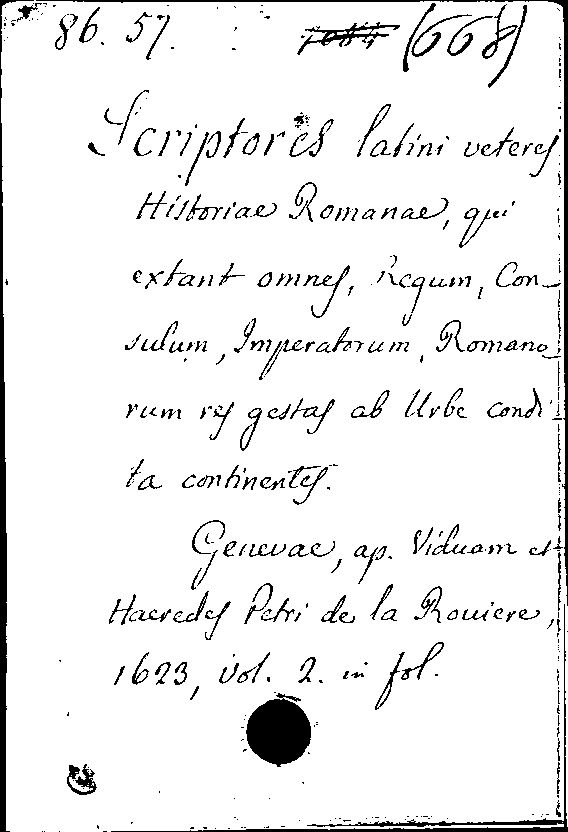 86. 57. (668)
Scriptores latini veteres
Historiae Romanae, qui
extant omnes, Regum, Con-
sulum, Imperatorum, Romano-
rum res gestas ab Urbe condi-
ta continentes.
Genevae, ap. Viduam et
Haeredes Petri de la Rouiere,
1623, vol. 2. in fol.